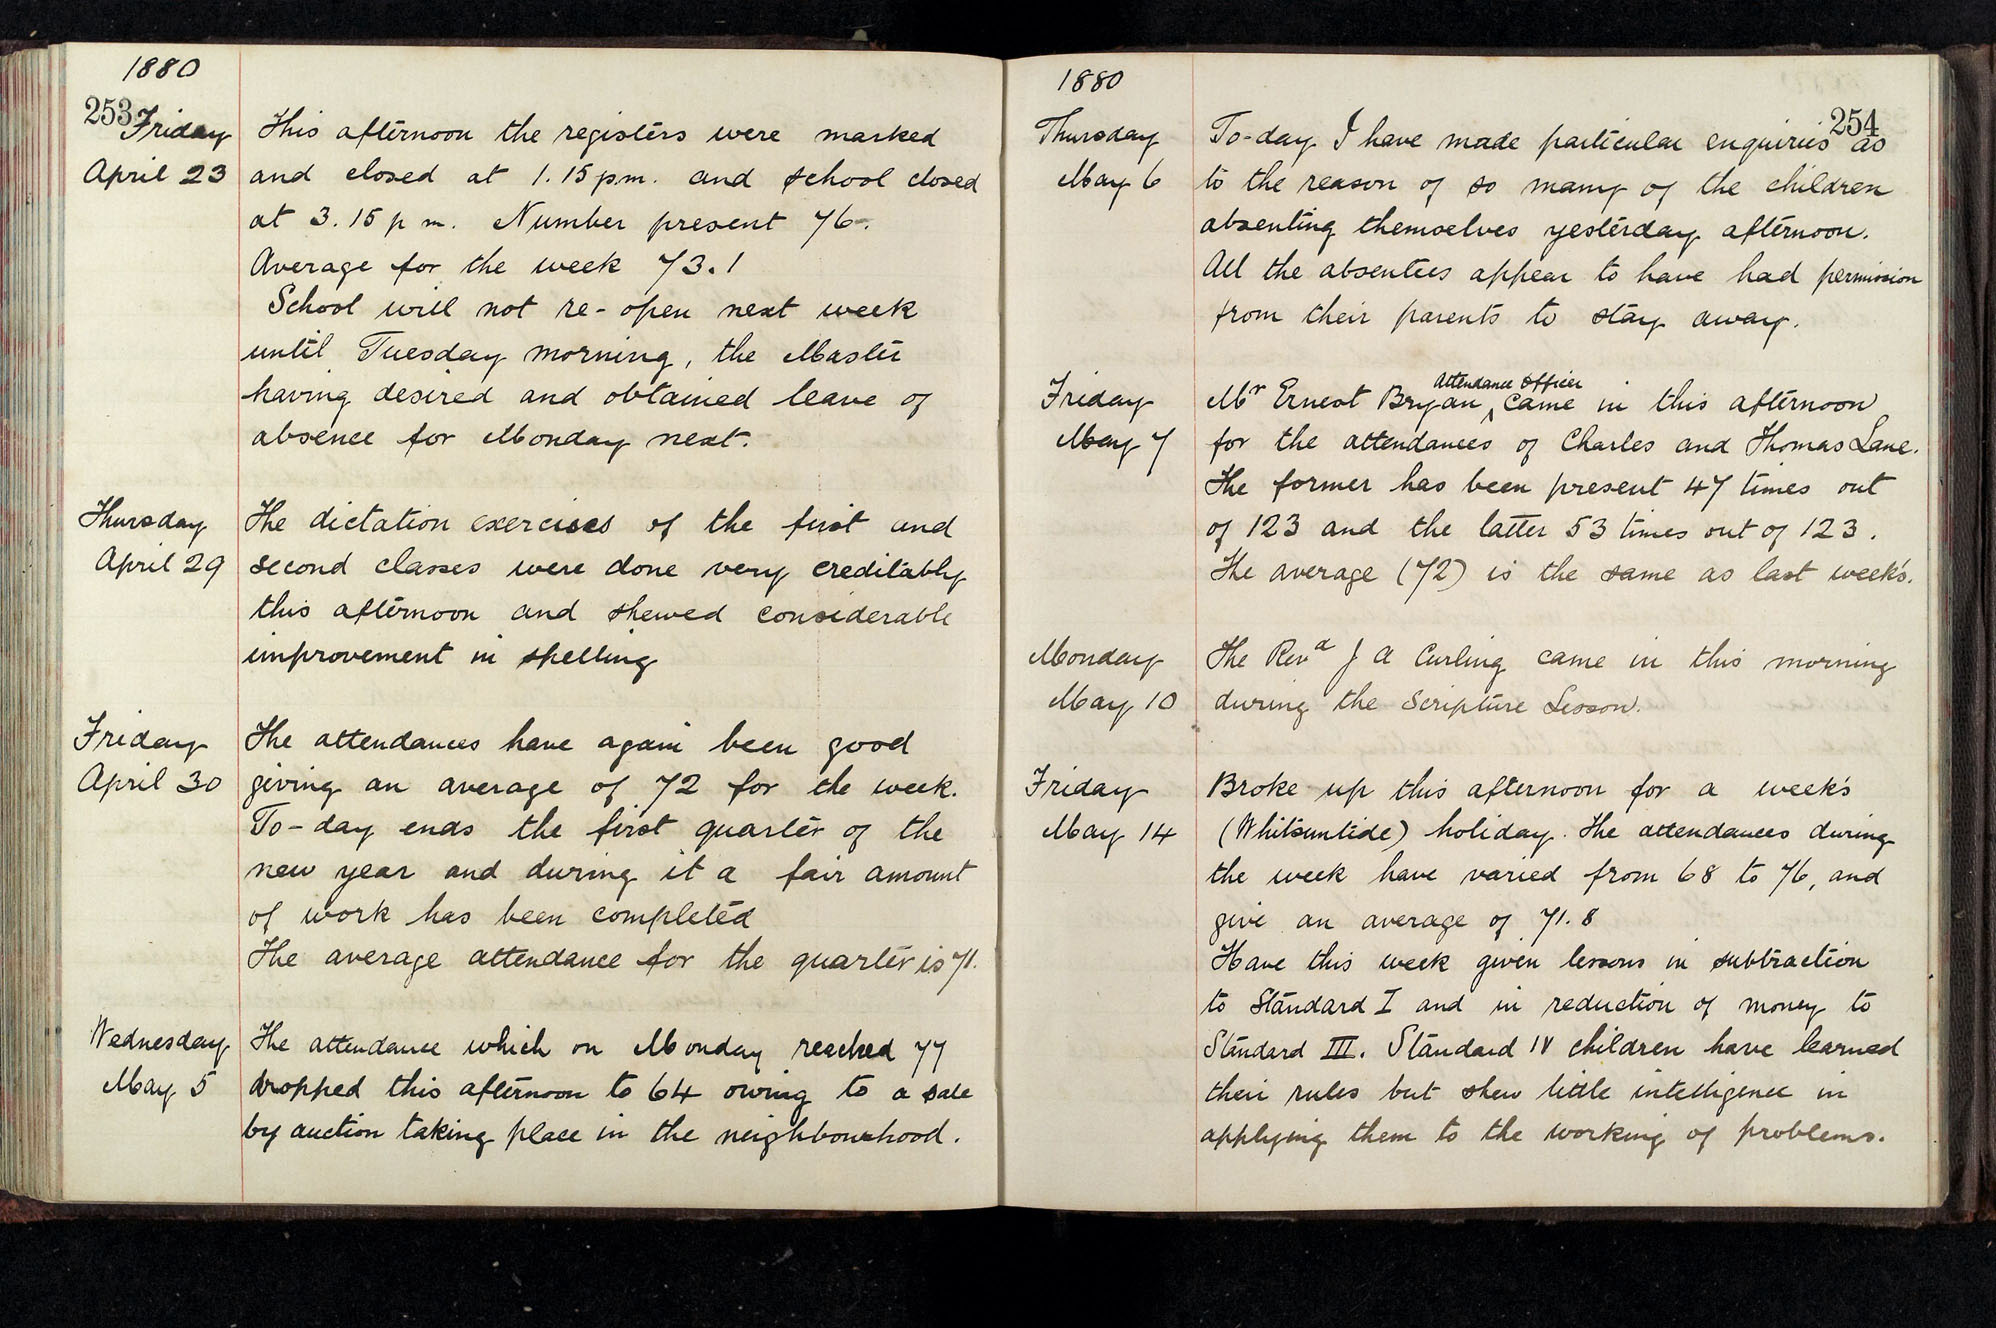 1880
253
Friday
April 23
This afternoon the registers were marked
and closed at 1.15 p.m. and school closed
at 3.15 p m. Number present 76.
Average for the week 73.1
School will not re-open next week
until Tuesday morning, the Master
having desired and obtained leave of
absence for Monday next.
Thursday
April 29
The dictation exercises of the first and
second classes were done very creditably
this afternoon and shewed considerable
improvement in spelling
Friday
April 30
The attendances have again been good
giving an average of 72 for the week.
To-day ends the first quarter of the
new year and during it a fair amount
of work has been completed
The average attendance for the quarter is 71.
Wednesday
May 5
The attendance which on Monday reached 77
dropped this afternoon to 64 owing to a sale
by auction taking place in the neighbourhood.
1880
254
Thursday
May 6
To-day I have made particular enquiries as
to the reason of so many of the children
absenting themselves yesterday afternoon.
All the absentees appear to have had permission
from their parents to stay away.
Friday
May 7
Attendance Officer
Mr Ernest Bryan ^ came in this afternoon
for the attendances of Charles and Thomas Lane.
The former has been present 47 times out
of 123 and the latter 53 times out of 123.
The average (72) is the same as last week's.
Monday
May 10
The Revd J A Curling came in this morning
during the Scripture Lesson.
Friday
May 14
Broke up this afternoon for a week's
(Whitsuntide) holiday. The attendances during
the week have varied from 68 to 76, and
give an average of 71.8
Have this week given lessons in subtraction
to Standard I and in reduction of money to
Standard III. Standard IV children have learned
their rules but shew little intelligence in
applying them to the working of problems.